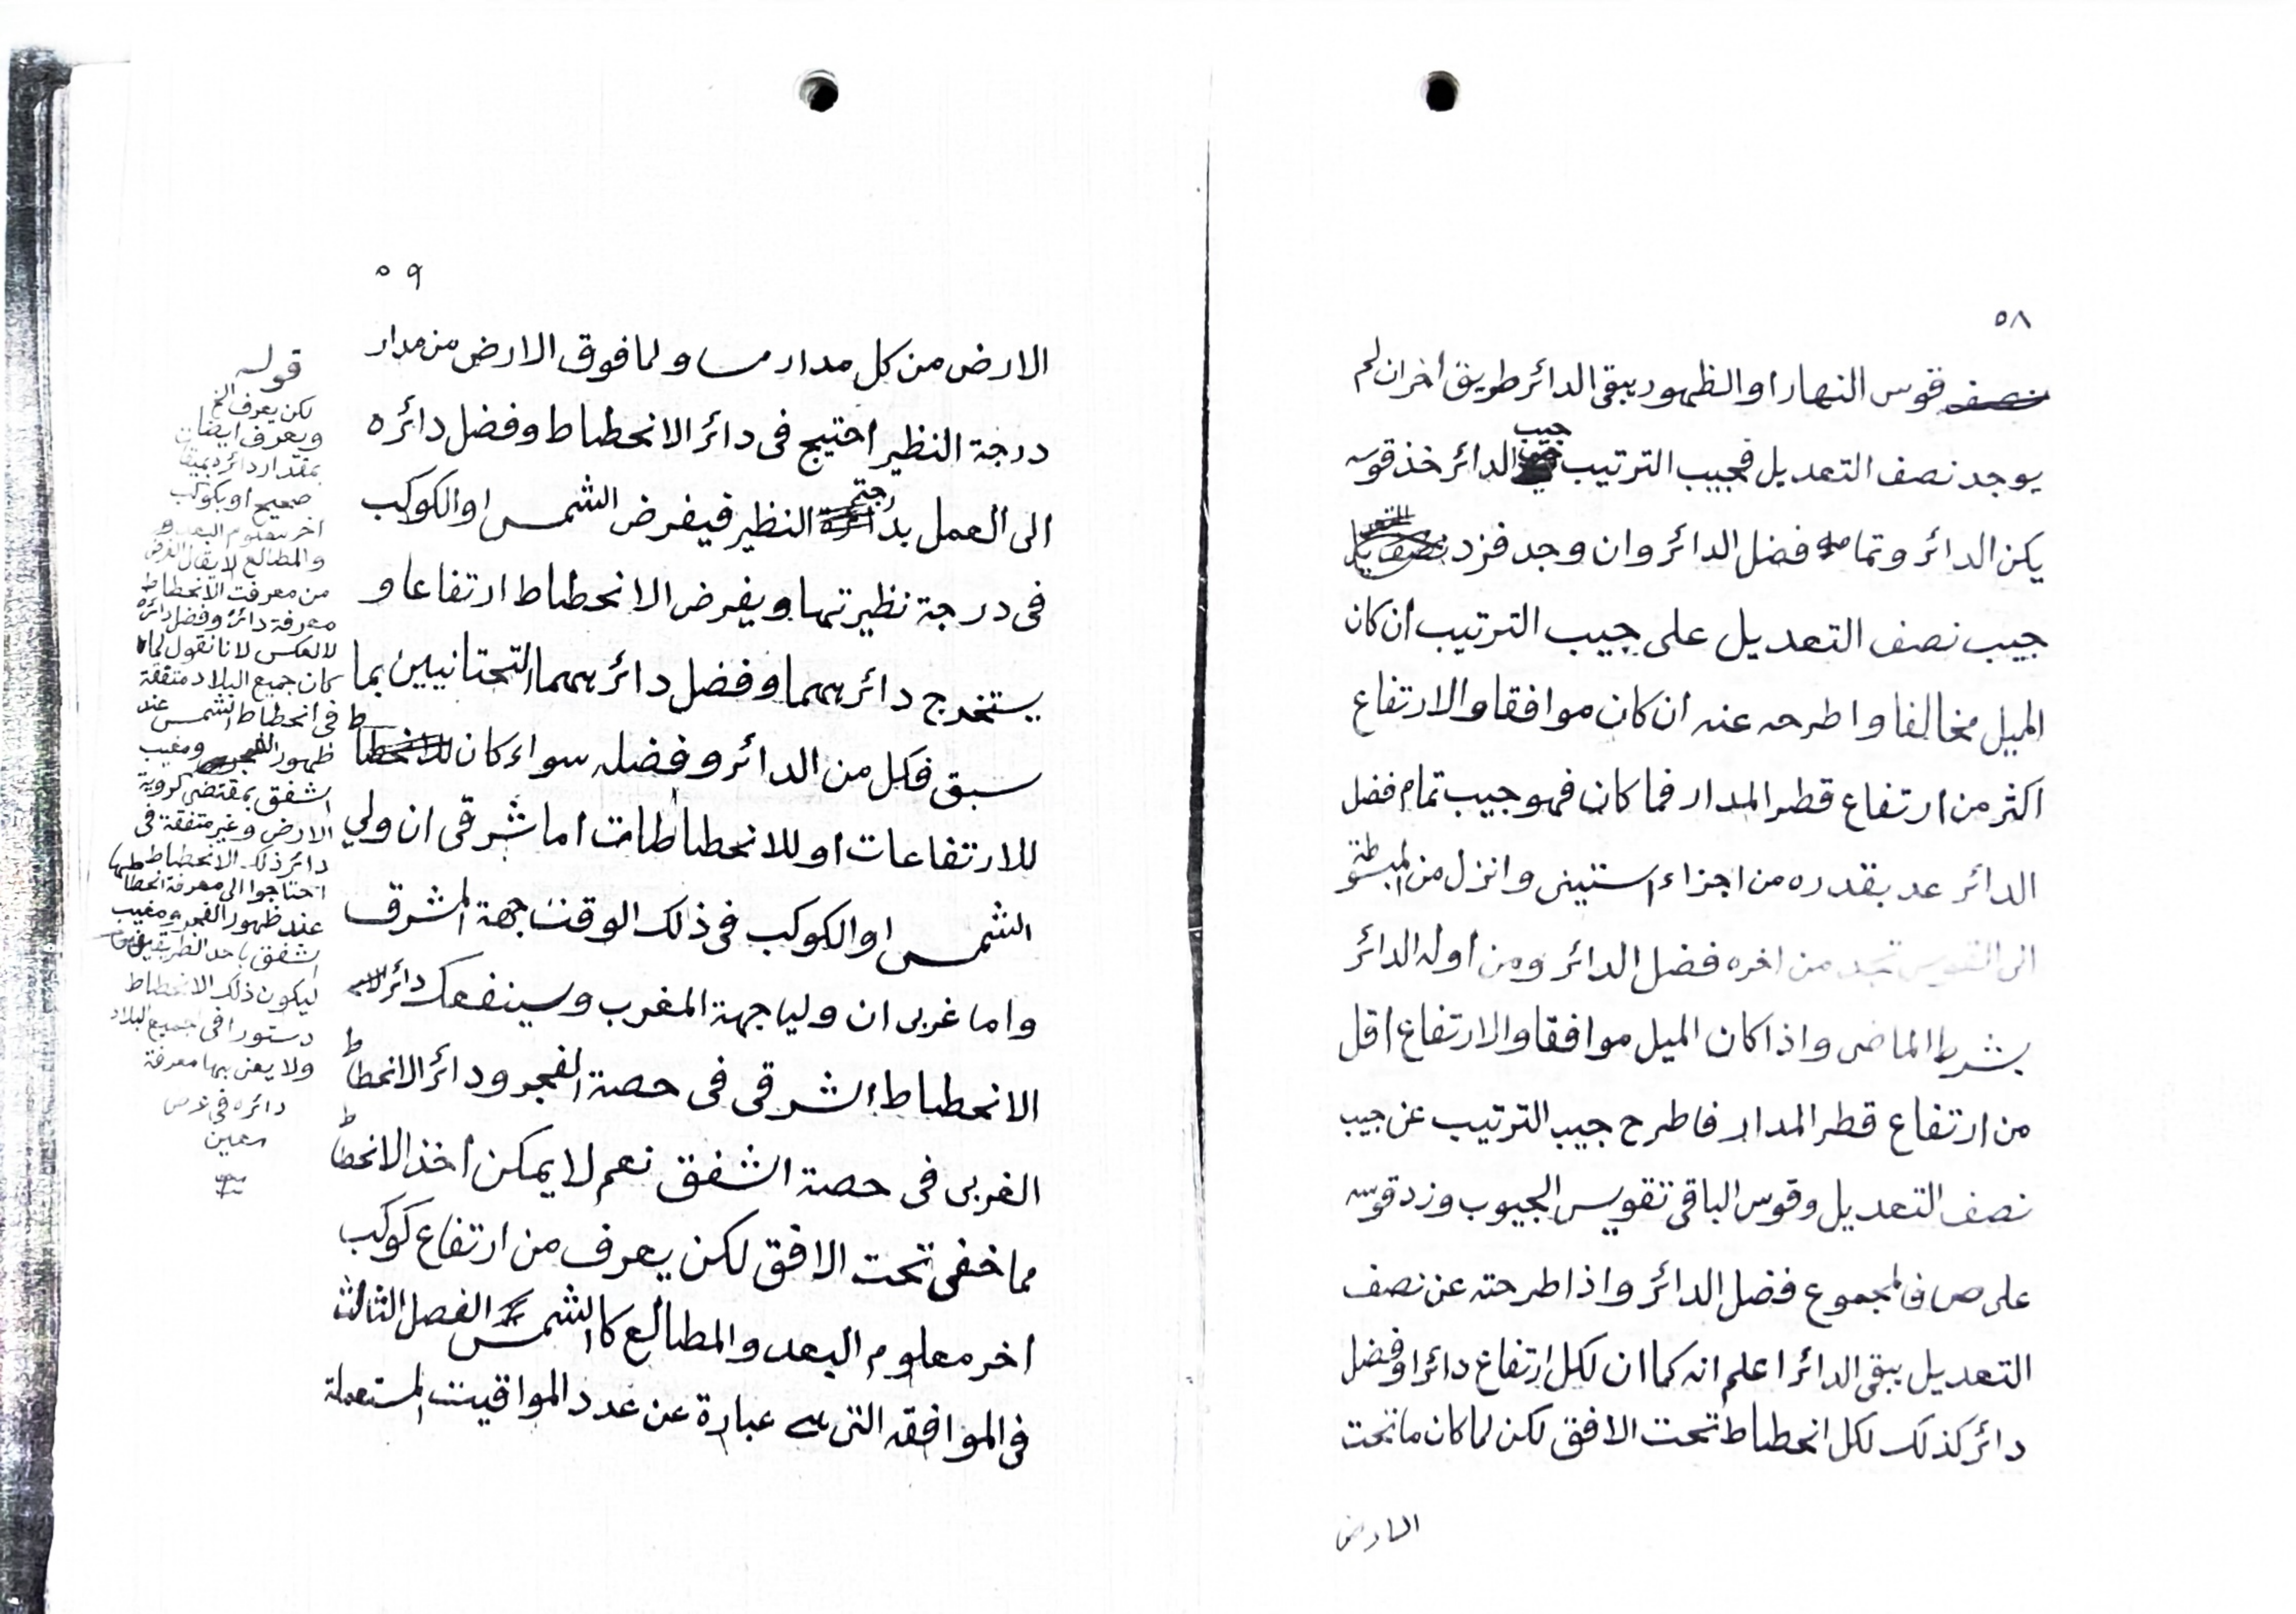 ٥٨
نصف قوس النهار او الظهور يبقى الدائر طريق اخر ان لم
يوجد نصف التعديل فجيب الترتيب جيب الدائر خذ قوسه
يكن الدائر وتمامه فضل الدائر وان وجد فزد
جيب نصف التعديل على جيب الترتيب ان كان
الميل مخالفا واطرحه عنه ان كان موافقا والارتفاع
اكثر من ارتفاع قطر المدار فما كان فهو جيب تمام فضل
الدائر عد بقدره من اجزاء الستينى وانزل من المبسوطة
الى القوس تجد من اخره فضل الدائر ومن اوله الدائر
بشرط الماضى واذا كان الميل موافقا والارتفاع اقل
من ارتفاع قطر المدار فاطرح جيب الترتيب عن جيب
نصف التعديل وقوس الباقى تقويس الجيوب وزد قوسه
على ص فالمجموع فضل الدائر واذا طرحته عن نصف
التعديل يبقى الدائر اعلم انه كما ان لكل ارتفاع دائرا وفضل
دائر كذلك لكل انحطاط تحت الافق لكن لما كان ما تحت
الارض
٥٩
الارض من كل مدار مساو لما فوق الارض من مدار
درجة النظير احتيج فى دائر الانحطاط وفضل دائره
الى العمل بدرجة النظير فيفرض الشمس او الكوكب
فى درجة نظيرتها ويفرض الانحطاط ارتفاعا و
يستخرج دائرهما وفضل دائرهما التحتانيين بما
سبق فكل من الدائر وفضله سواء كان
للارتفاعات او للانحطاطات اما شرقى ان ولي
الشمس او الكوكب فى ذلك الوقت جهة المشرق
واما غربى ان وليا جهة المغرب وسينفعك دائر
الانحطاط الشرقى فى حصة الفجر ودائر الانحطاط
الغربى فى حصة الشفق نعم لا يمكن اخذ الانحطاط
مما خفى تحت الافق لكن يعرف من ارتفاع كوكب
اخر معلوم البعد والمطالع كالشمس الفصل الثالث
فى الموافقه التى هى عبارة عن عدد المواقيت المستعملة
قوله
لكن يعرف الخ
ويعرف ايضا
بمقدار دائره بميقات
صحيح او بكوكب
اخر معلوم البعد و
والمطالع لا يقال الغرض
من معرفت الانحطاط
معرفة دائره وفضل دائره
لا العكس لانا نقول لما
كان جميع البلاد متفقة
فى انحطاط الشمس عند
ظهور الفجر ومغيب
الشفق بمقتضى كروية
الارض وغير متفقة فى
دائر ذلك الانحطاط
احتاجوا الى معرفة انحطاطها
عند ظهور الفجر ومغيب
الشفق باحد الطريقين
ليكون ذلك الانحطاط
دستورا فى جميع البلاد
ولا يعنى بها معرفة
دائره فى عرض
معين